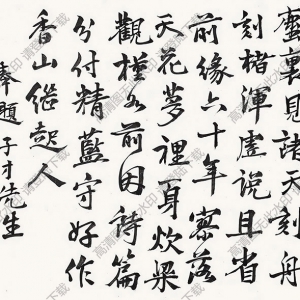 裏見諸天刻舟
刻楮渾虛說且省
前緣六十年寥落
天花夢裡身炊粱
觀槿如前因詩篇
分付精藍守好作
香山繼起人
奉題子才先生